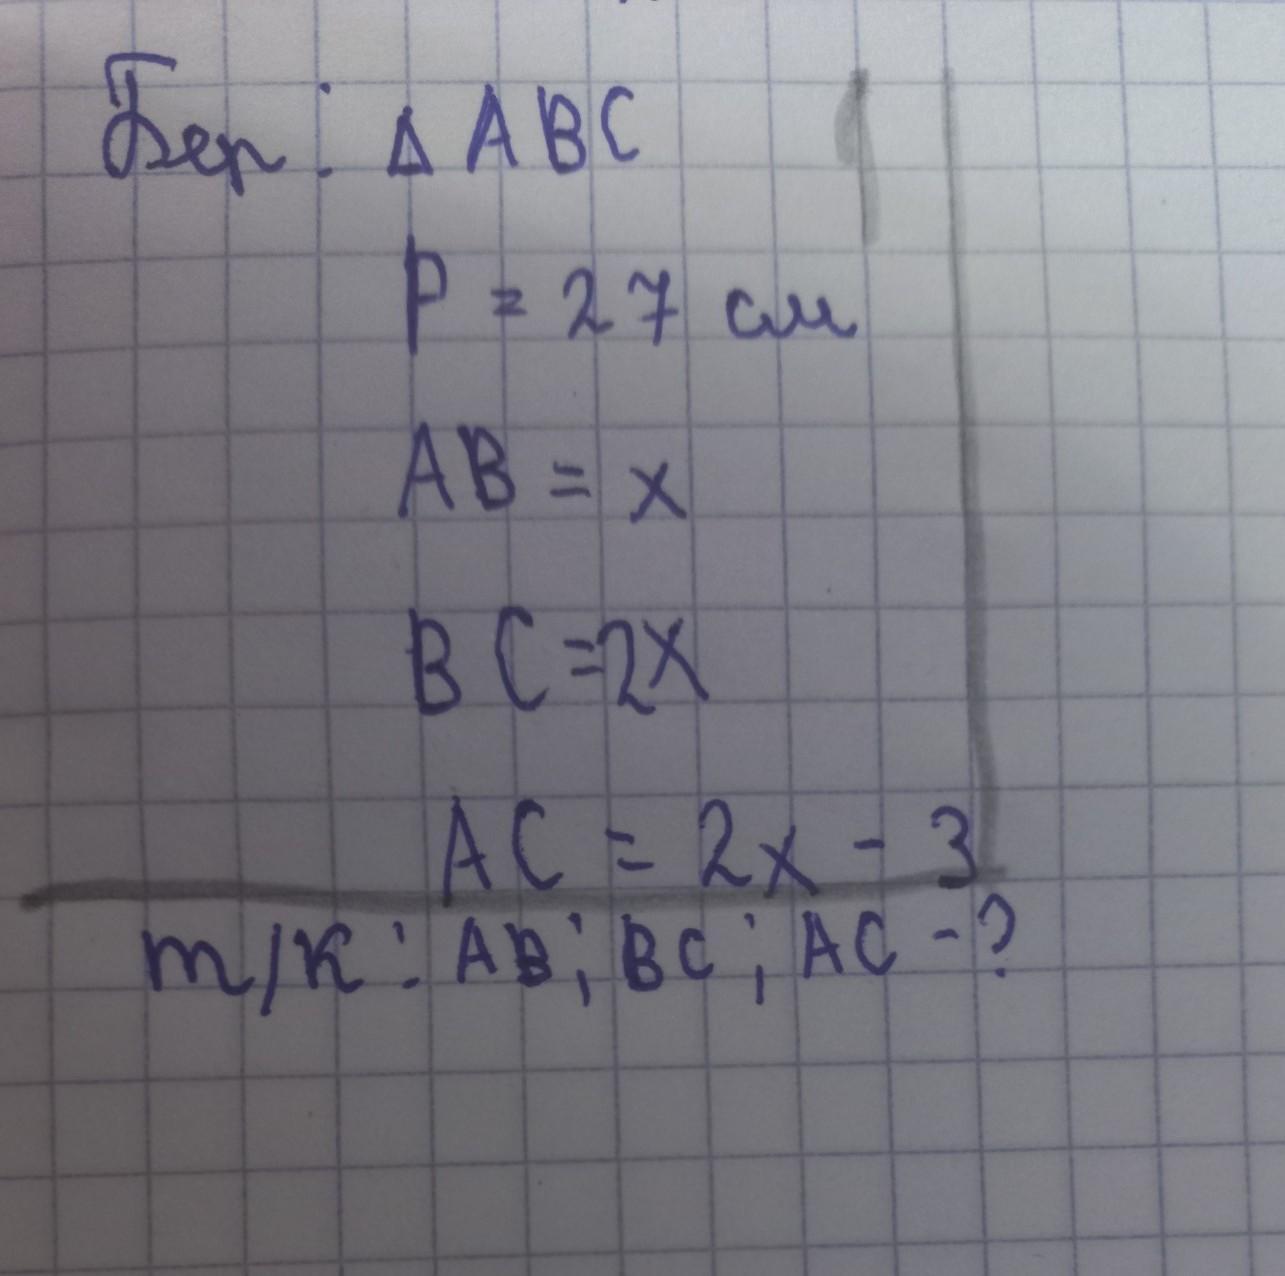 Бер: Δ ABC
P = 27 см
AB = x
BC = 2x
AC = 2x - 3
т/к: AB; BC; AC - ?